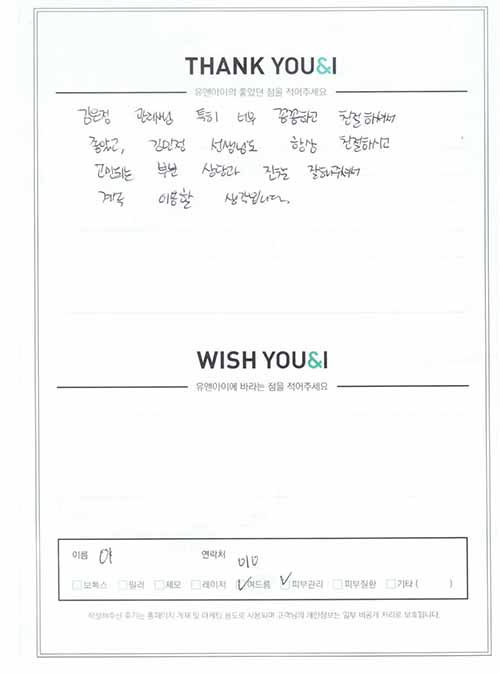 THANK YOU&I
유앤아이의 좋았던 점을 적어주세요
김은정 관리사님 특히 너무 꼼꼼하고 친절하셔서
좋았고, 김민정 선생님도 항상 친절하시고
고민되는 부분 상담과 진료도 잘해주셔서
계속 이용할 생각입니다.
WISH YOU&I
유앤아이에 바라는 점을 적어주세요
이름 연락처 010
보톡스 필러 제모 레이저 여드름 피부관리 피부질환 기타 ( )
작성해주신 후기는 홈페이지 게재 및 마케팅 용도로 사용되며 고객님의 개인정보는 일부 비공개 처리로 보호됩니다.